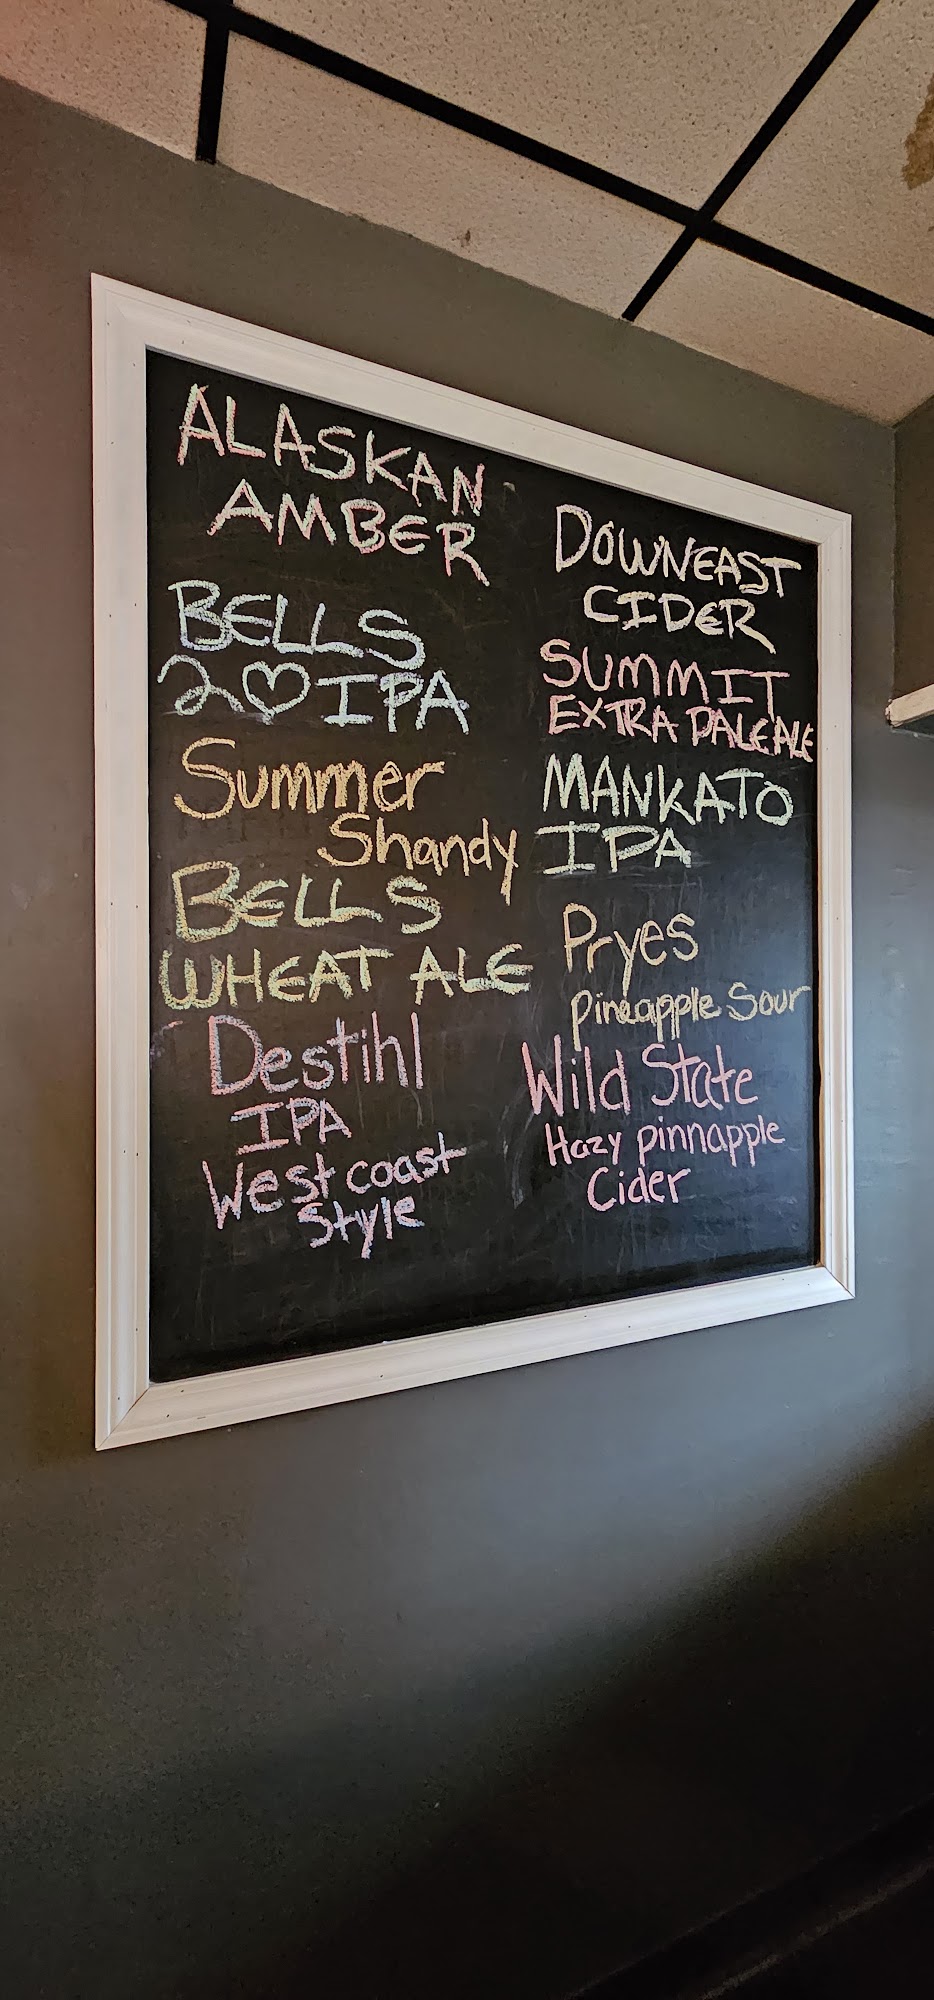 ALASKAN
AMBER
BELLS
2♡IPA
Summer
Shandy
BELLS
WHEAT ALE
Destihl
IPA
West coast
Style
DOWNEAST
CIDER
SUMMIT
EXTRA PALE ALE
MANKATO
IPA
Pryes
Pineapple Sour
Wild State
Hazy pinnapple
Cider